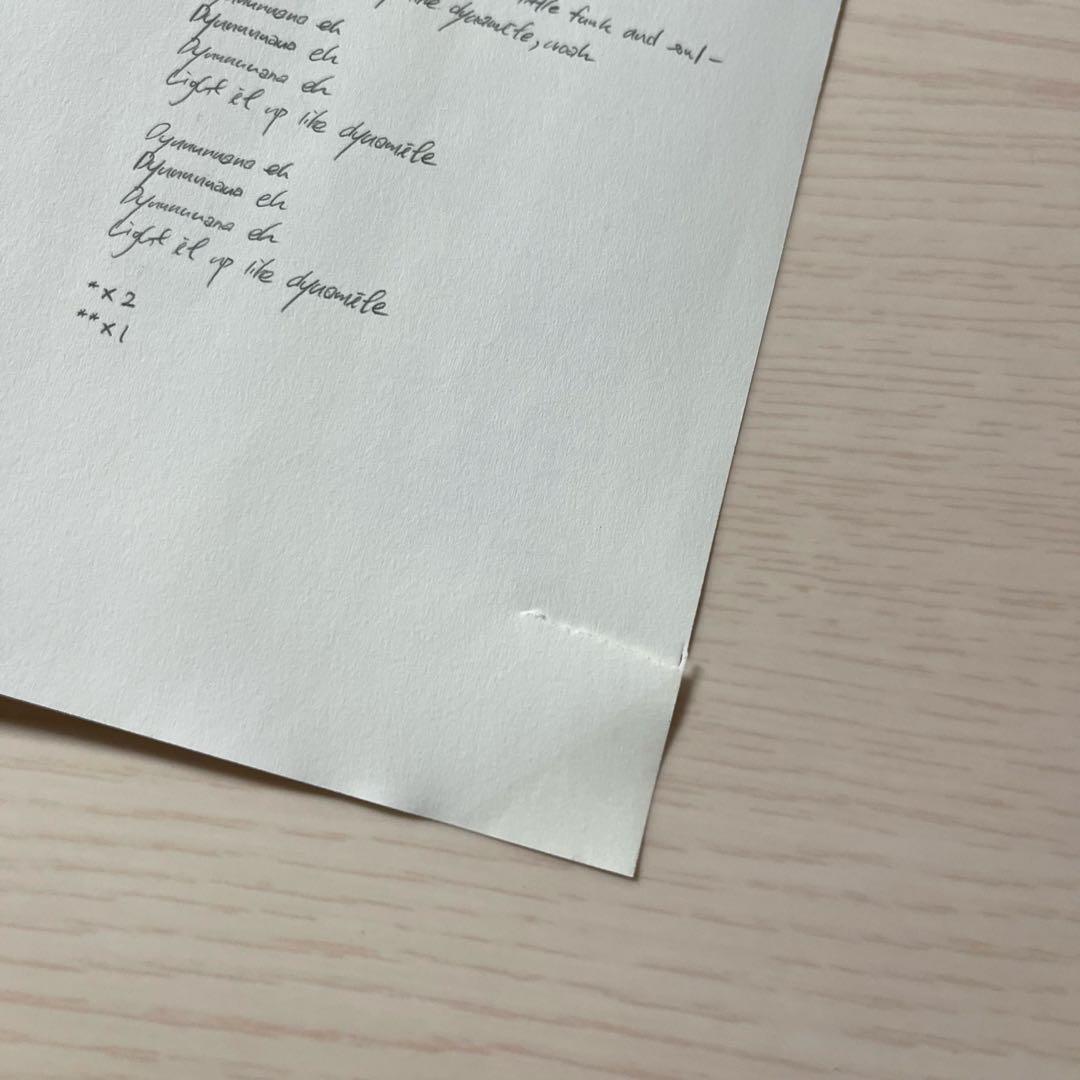 little funk and soul-
like dynamite, woah
eh
Dynnnnnana eh
Dynnnnnana eh
Light it up like dynamite
Dynnnnnana eh
Dynnnnnana eh
Dynnnnnana eh
Light it up like dynamite
*x2
**x1